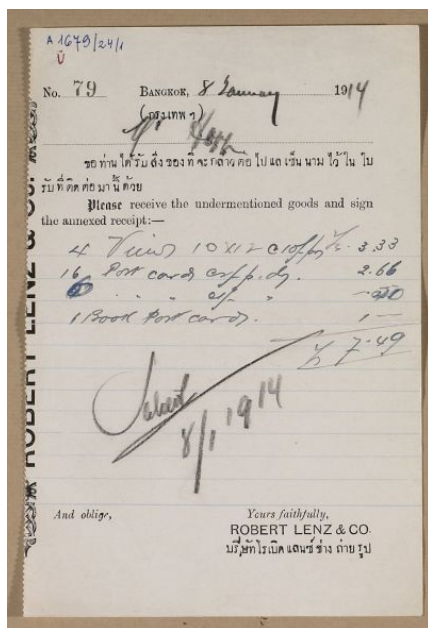 A 1679/24/1
No. 79 BANGKOK, 8 January 1914
(กรุงเทพ ฯ)
ขอ ท่าน ได้ รับ สิ่ง ของ ที่ จะ กล่าว ต่อ ไป แล เซ็น นาม ไว้ ใน ใบ
รับ ที่ ติด ต่อ มา นี้ ด้วย
Please receive the undermentioned goods and sign
the annexed receipt:—
4 Views 10x12 3.33
16 Post cards 2.66
1 Book Post cards. 1 —
7.49
8/1 1914
And oblige, Yours faithfully,
ROBERT LENZ & CO.
บริษัท โรเบิต แลนซ์ ช่าง ถ่าย รูป
ROBERT LENZ & CO.